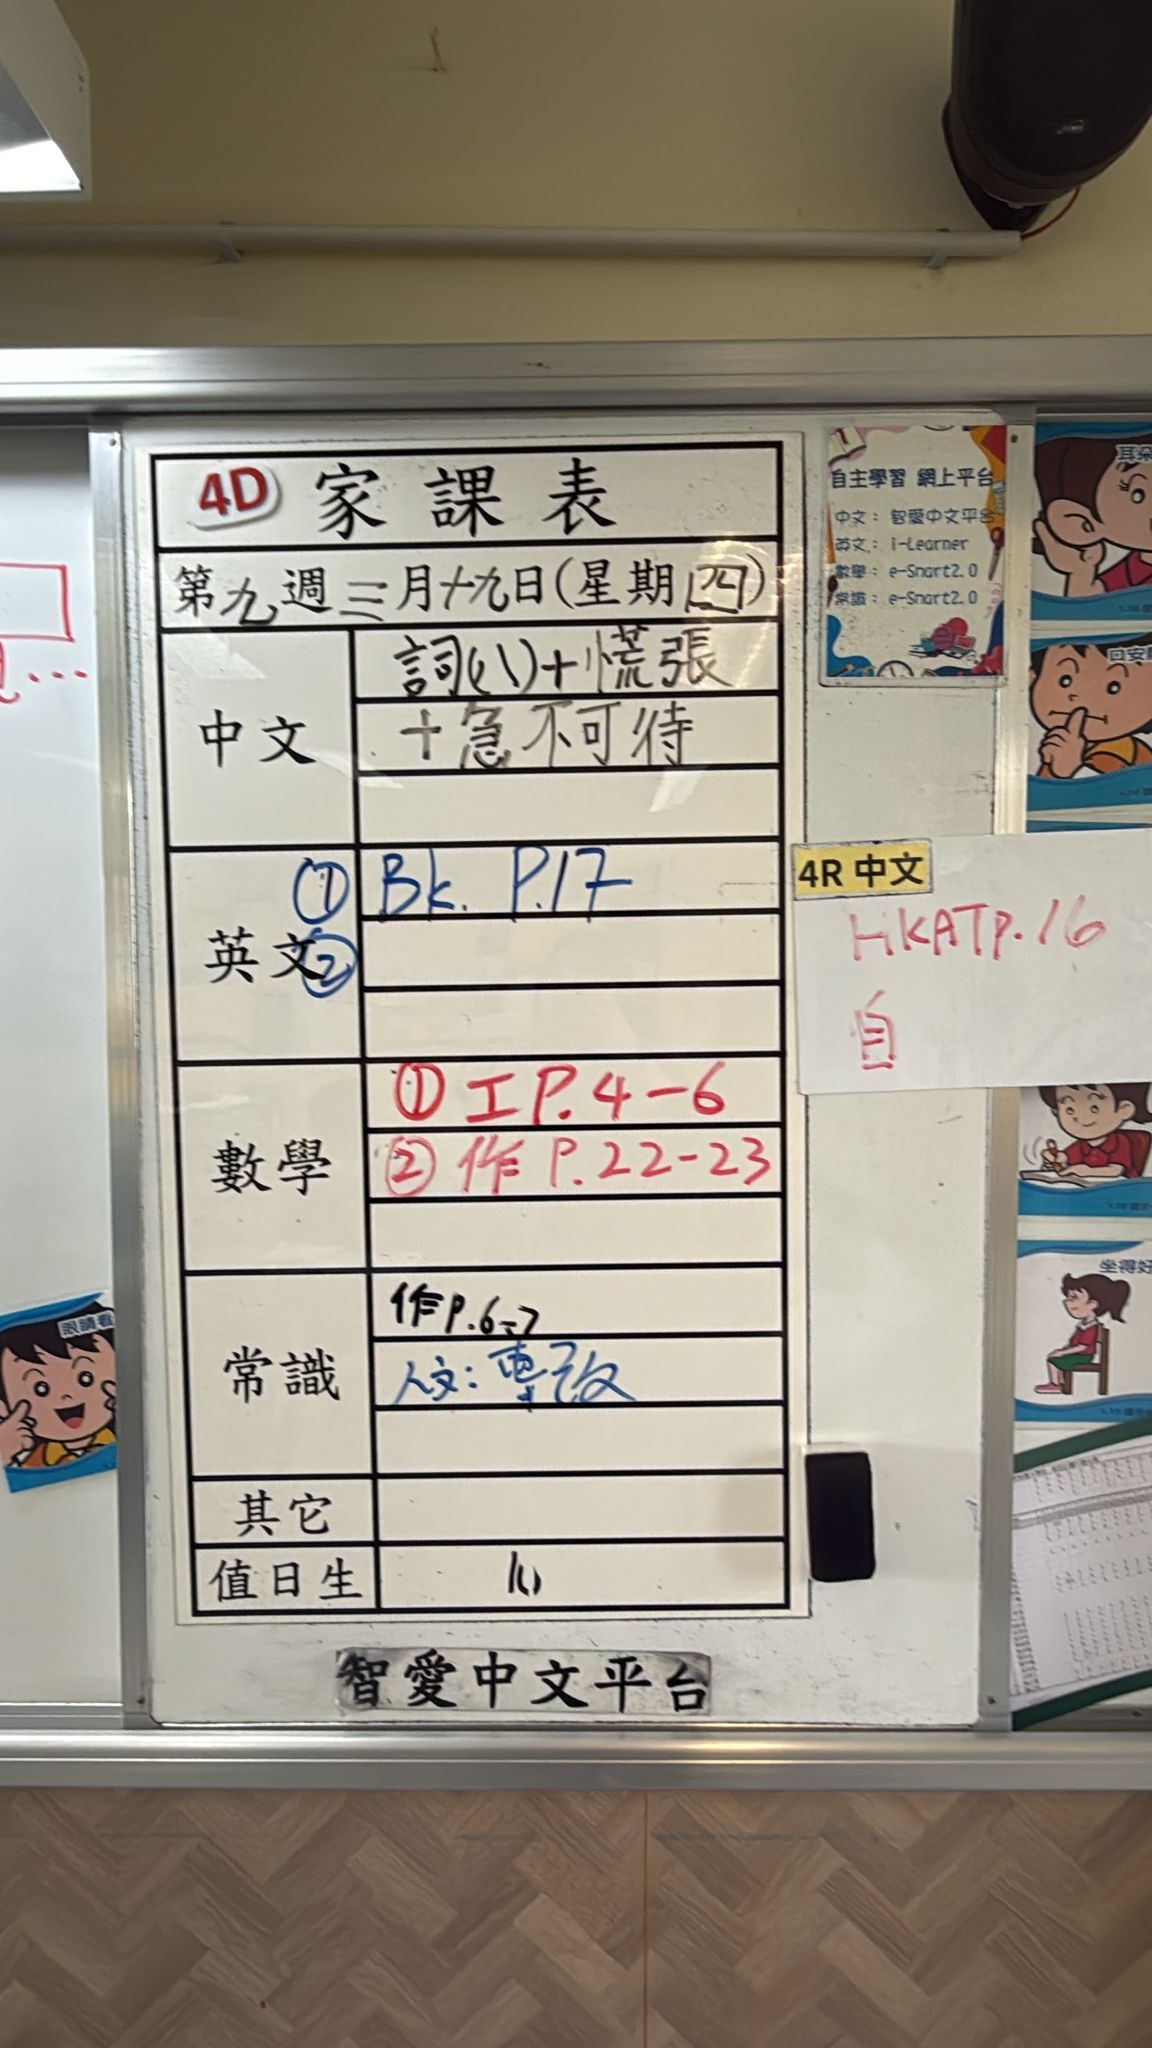 4D 家課表
第九週三月十九日(星期四)
中文
詞(八)+慌張
+急不可待
英文
① Bk. P.17
②
數學
① 工 P.4-6
② 作 P.22-23
常識
作 P.6-7
人文:專改
其它
值日生
智愛中文平台
自主學習 網上平台
中文: 智愛中文平台
英文: i-Learner
數學: e-Smart2.0
常識: e-Smart2.0
4R 中文
HKATP.16
自
坐得好